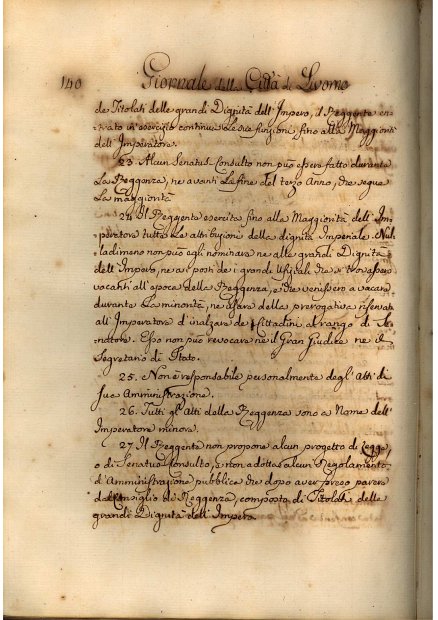 140 Giornale della Città di Livorno
de Titolati delle grandi Dignità dell'Impero, il Reggente en-
trato in esercizio continua le sue funzioni fino alla Maggiorità
dell'Imperatore.
23. Alcun Senatus-Consulto non può essere fatto durante
la Reggenza, ne avanti la fine del terzo Anno, che segue
la maggiorità
24. Il Reggente esercita fino alla Maggiorità dell'Im-
peratore tutte le attribuzioni della dignità Imperiale. Nul-
ladimeno non può egli nominare ne alle grandi Dignità
dell'Impero, ne ai posti dei grandi Ufiziali che si trovassero
vacanti all'epoca della Reggenza, e che venissero a vacare
durante la minorità, ne usare della prerogativa riservata
all'Imperatore d'inalzare de Cittadini al rango di Se-
natore. Esso non può revocare ne il Gran Giudice ne il
Segretario di Stato.
25. Non è responsabile personalmente degl'Atti di
sua Amministrazione.
26. Tutti gl'Atti della Reggenza sono a Nome dell'
Imperatore minore.
27. Il Reggente non propone alcun progetto di Legge
o di Senatus Consulto, e non adotta alcun Regolamento
d'Amministrazione pubblica che dopo aver preso parere
dal Consiglio di Reggenza, composto di Titolati delle
grandi Dignità dell'Impero